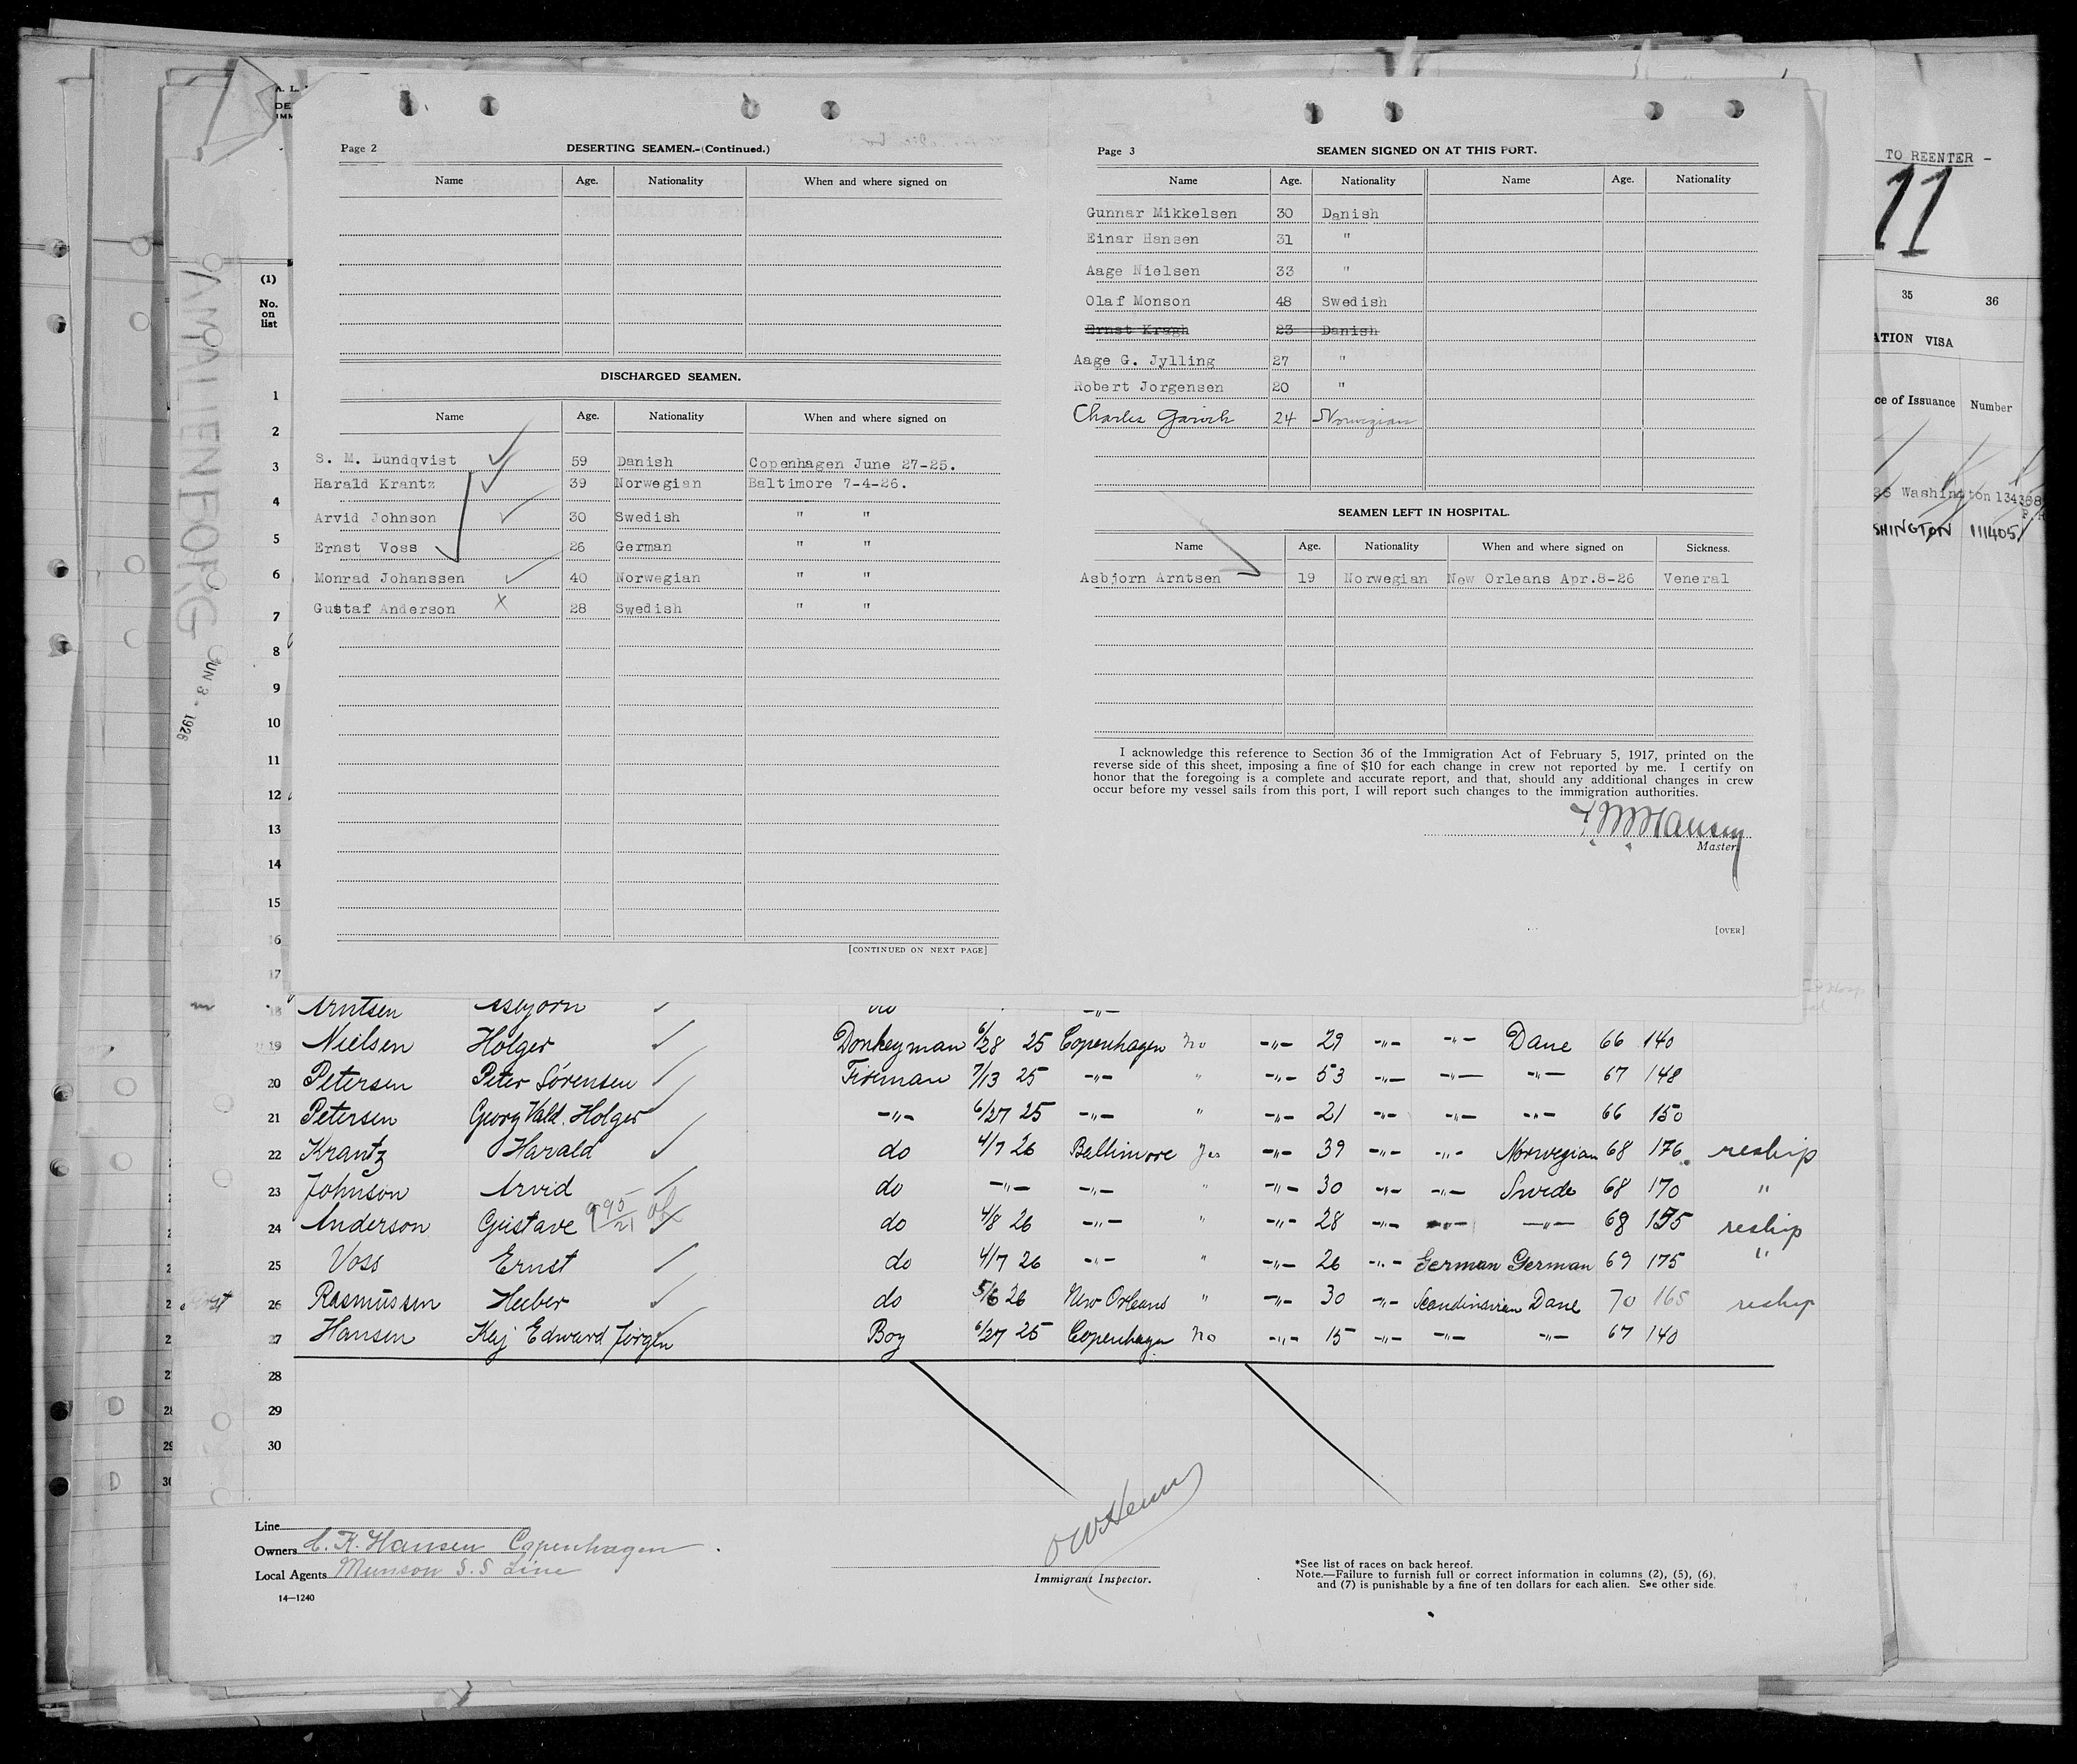 TO REENTER -
11
35 36
ATION VISA
ce of Issuance Number
Washington
SHINGTON 111405
AMALIENBORG
JUN 3 - 1926
(1)
No. on list
Page 2 DESERTING SEAMEN.-(Continued.)
Name Age. Nationality When and where signed on
DISCHARGED SEAMEN.
Name Age. Nationality When and where signed on
S. M. Lundqvist 59 Danish Copenhagen June 27-25.
Harald Krantz 39 Norwegian Baltimore 7-4-26.
Arvid Johnson 30 Swedish " "
Ernst Voss 26 German " "
Monrad Johanssen 40 Norwegian " "
Gustaf Anderson 28 Swedish " "
[CONTINUED ON NEXT PAGE]
Page 3 SEAMEN SIGNED ON AT THIS PORT.
Name Age. Nationality Name Age. Nationality
Gunnar Mikkelsen 30 Danish
Einar Hansen 31 "
Aage Nielsen 33 "
Olaf Monson 48 Swedish
Ernst Kragh 23 Danish
Aage G. Jylling 27 "
Robert Jorgensen 20 "
Charles 24 Norwegian
SEAMEN LEFT IN HOSPITAL.
Name Age. Nationality When and where signed on Sickness.
Asbjorn Arntsen 19 Norwegian New Orleans Apr.8-26 Veneral
I acknowledge this reference to Section 36 of the Immigration Act of February 5, 1917, printed on the
reverse side of this sheet, imposing a fine of $10 for each change in crew not reported by me. I certify on
honor that the foregoing is a complete and accurate report, and that, should any additional changes in crew
occur before my vessel sails from this port, I will report such changes to the immigration authorities.
Hansen
Master.
[OVER]
1
2
3
4
5
6
7
8
9
10
11
12
13
14
15
16
17
18 Arntsen Asbjorn do -"-
19 Nielsen Holger Donkeyman 6/28 25 Copenhagen No -"- 29 -"- -"- Dane 66 140
20 Petersen Peter Sörensen Fireman 7/13 25 -"- " -"- 53 -"- -"- -"- 67 148
21 Petersen Georg Vald. Holger -"- 6/27 25 -"- " -"- 21 -"- -"- -"- 66 150
22 Krantz Harald do 4/7 26 Baltimore Yes -"- 39 -"- -"- Norwegian 68 176 reship
23 Johnson Arvid do -"- -"- " -"- 30 -"- -"- Swede 68 170 "
24 Anderson Gustave do 4/8 26 -"- " -"- 28 -"- -"- -"- 68 155 reship
25 Voss Ernst do 4/7 26 -"- " -"- 26 -"- German German 69 175 "
26 Rasmussen Heber do 5/6 26 New Orleans " -"- 30 -"- Scandinavian Dane 70 165 reship
27 Hansen Kaj Edward Jörgen Boy 6/27 25 Copenhagen No -"- 15 -"- -"- -"- 67 140
28
29
30
Line
Owners C. K. Hansen Copenhagen.
Local Agents Munson S.S Line
14—1240
Immigrant Inspector.
*See list of races on back hereof.
Note.—Failure to furnish full or correct information in columns (2), (5), (6),
and (7) is punishable by a fine of ten dollars for each alien. See other side.